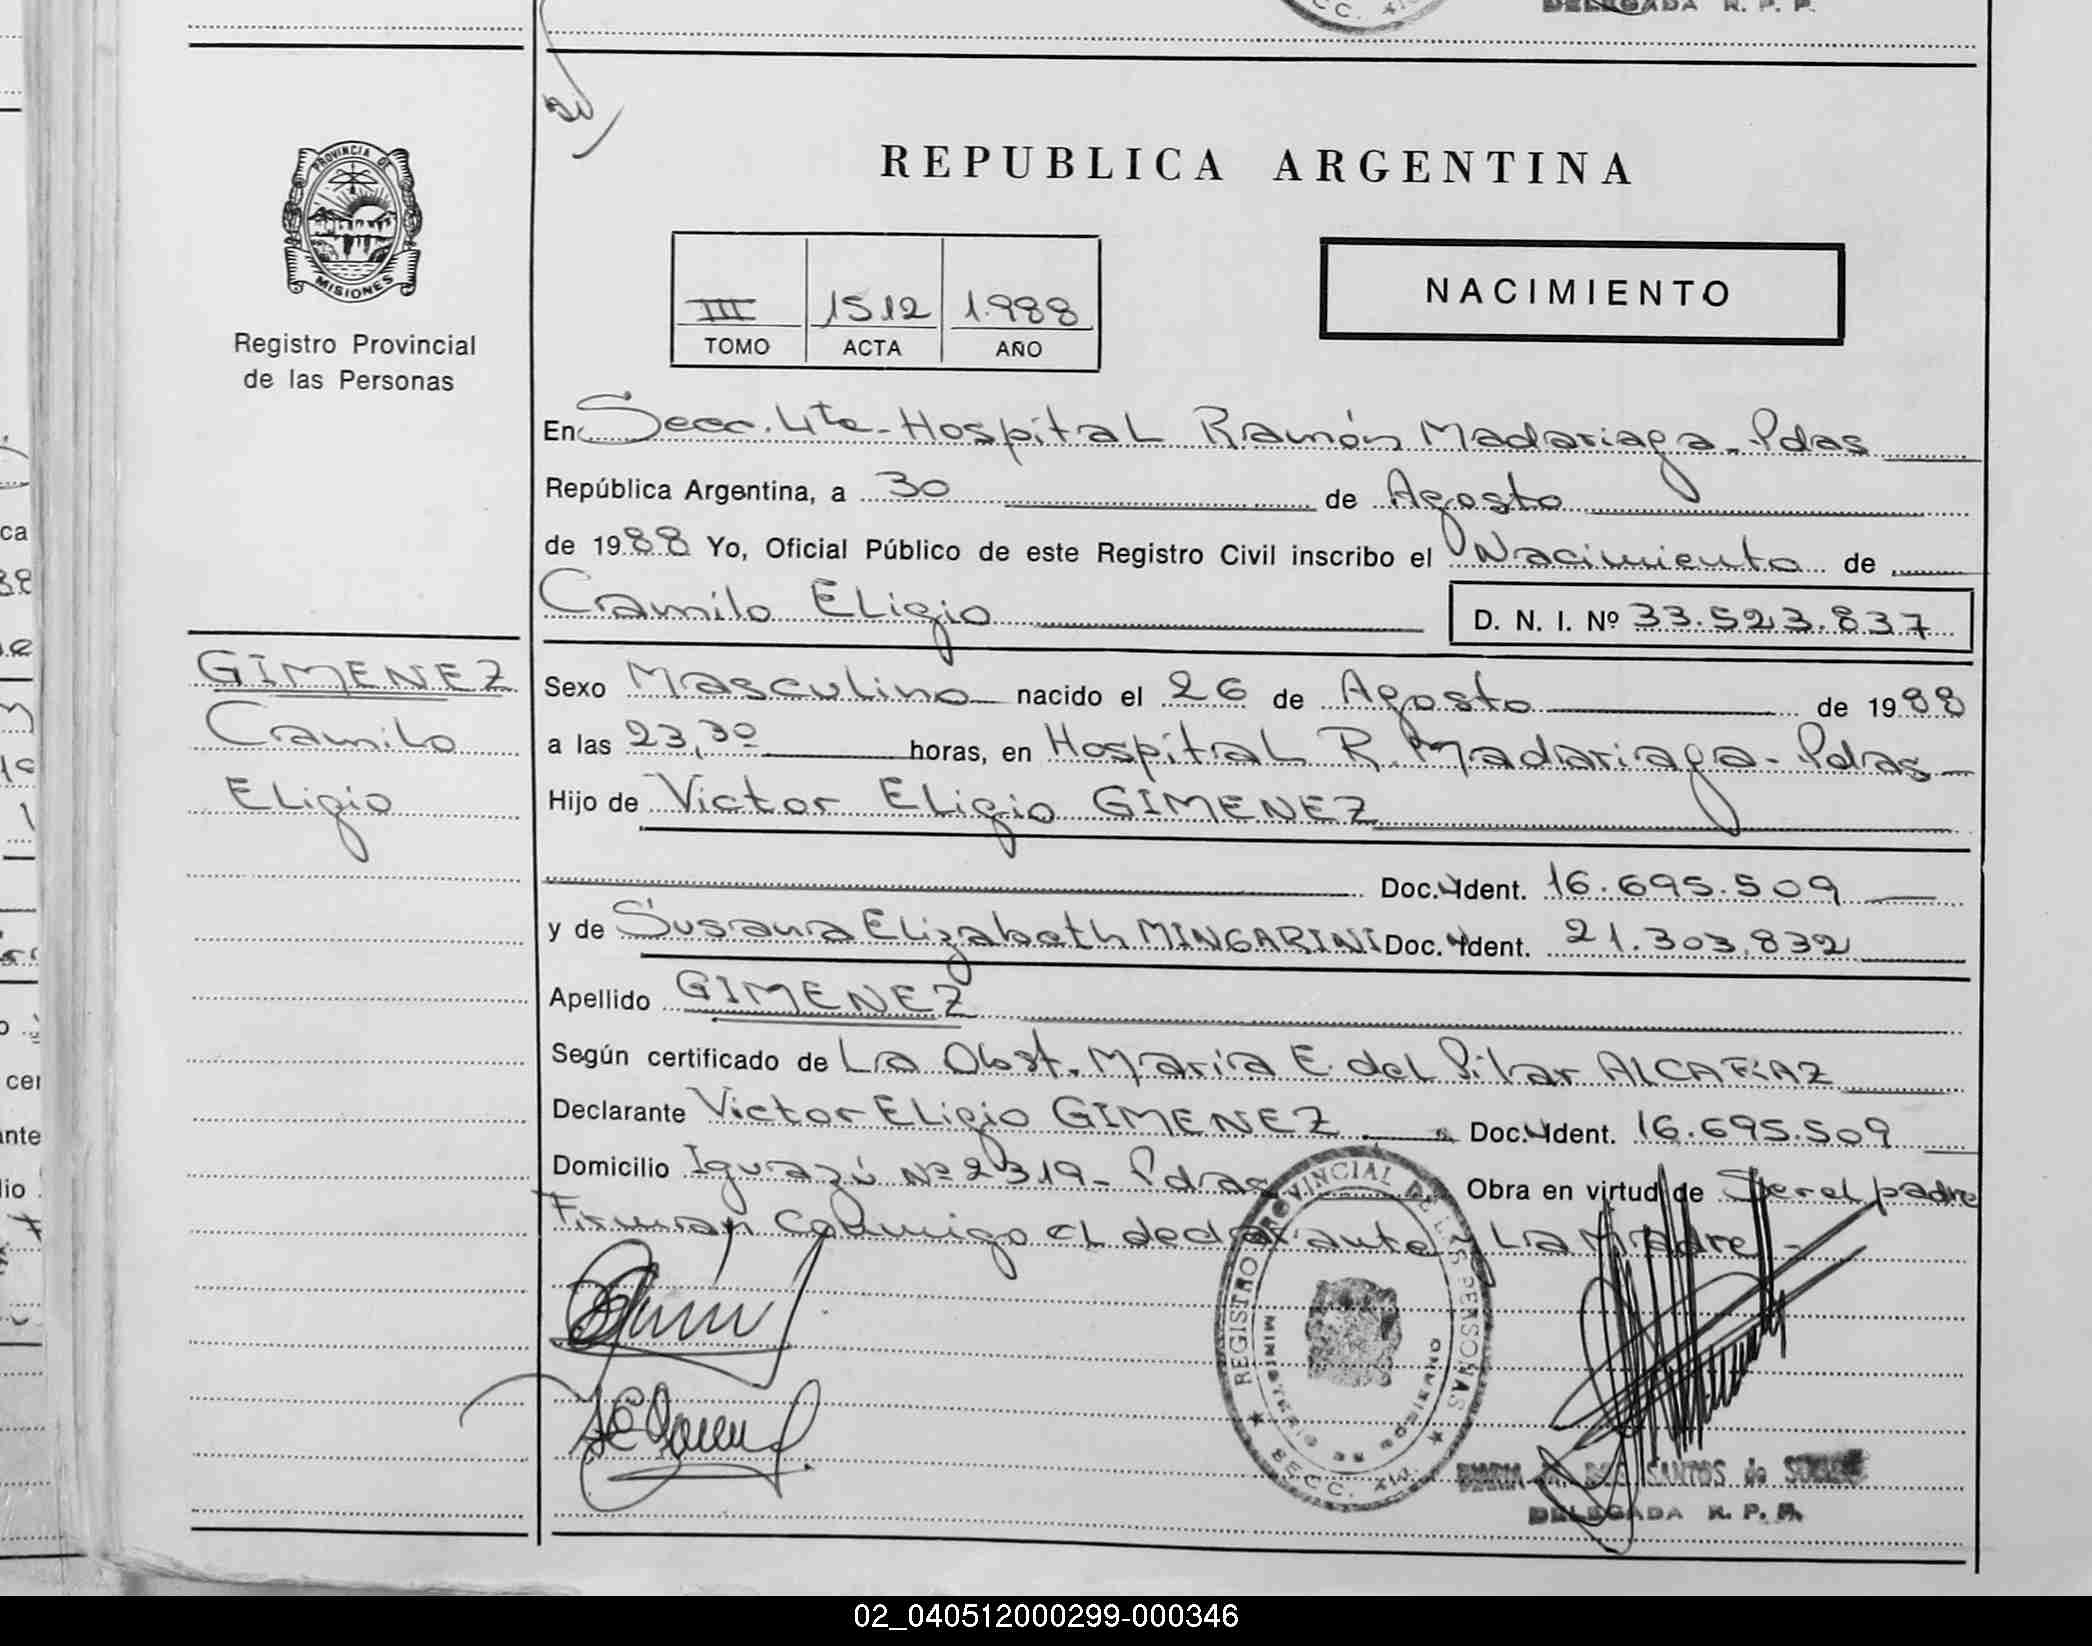 DELEGADA R. P. P.
PROVINCIA DE
MISIONES
Registro Provincial
de las Personas
REPUBLICA ARGENTINA
III 1512 1.988
TOMO ACTA AÑO
NACIMIENTO
En Secc. 4ta - Hospital Ramón Madariaga - Pdas
República Argentina, a 30 de Agosto
de 1988 Yo, Oficial Público de este Registro Civil inscribo el Nacimiento de
Camilo Eligio D. N. I. Nº 33.523.837
GIMENEZ
Camilo
Eligio
Sexo Masculino nacido el 26 de Agosto de 1988
a las 23,30 horas, en Hospital R. Madariaga - Pdas
Hijo de Victor Eligio GIMENEZ
Doc. Ident. 16.695.509
y de Susana Elizabeth MINGARINI Doc. Ident. 21.303.832
Apellido GIMENEZ
Según certificado de La Obst. María E. del Pilar
Declarante Victor Eligio GIMENEZ Doc. Ident. 16.695.509
Domicilio Iguazú Nº 2319 - Pdas Obra en virtud de Ser el padre
Firman conmigo el declarante y La Madre -
REGISTRO PROVINCIAL DE LAS PERSONAS
MINISTERIO DE GOBIERNO
SECC.
SANTOS de
DELEGADA R. P. P.
02_040512000299-000346